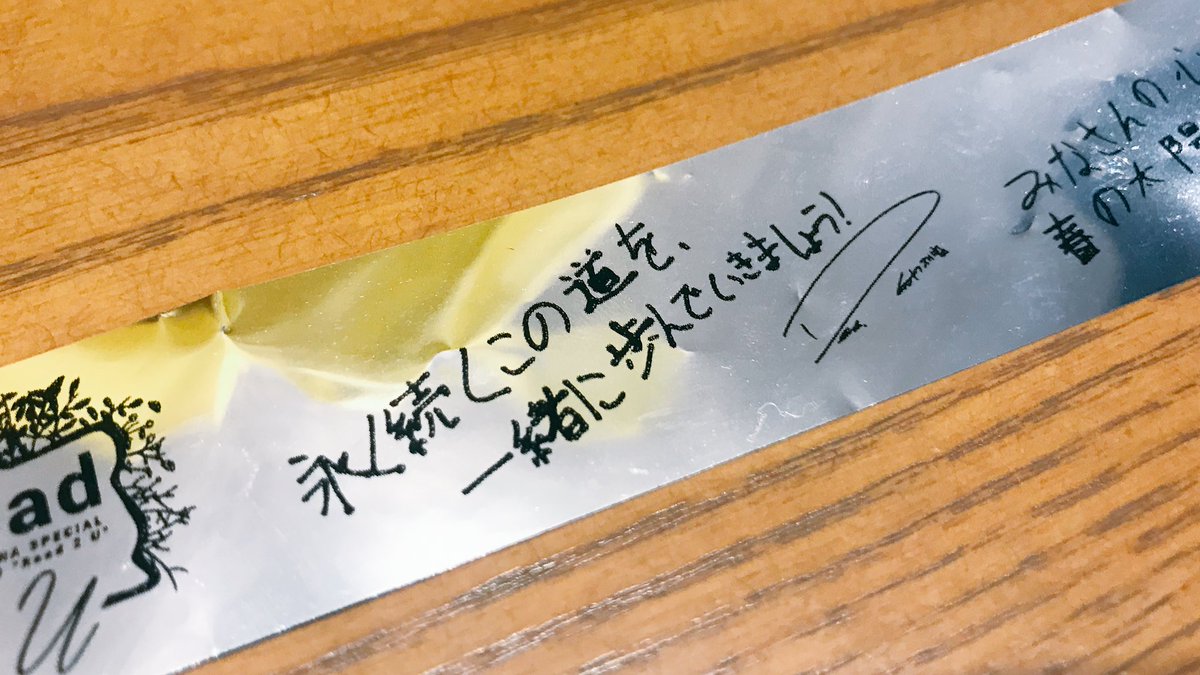 ad
NA SPECIAL
"Road 2 U"
U
永く続くこの道を、
一緒に歩んでいきましょう!
みなさんの
春の木陽